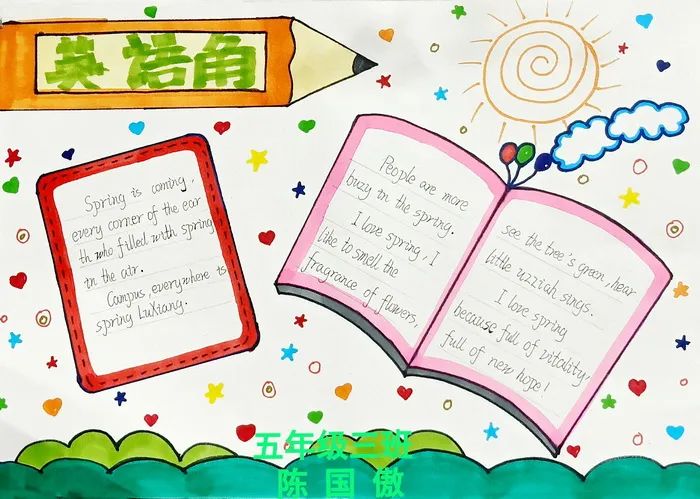 英语角
Spring is coming,
every corner of the ear
th who filled with spring
in the air.
Campus, everywhere is
spring LuXiang.
People are more
buzy in the spring.
I love spring, I
like to smell the
fragrance of flowers,
see the tree's green, hear
little uzziah sings.
I love spring
because full of vitality,
full of new hope!
五年级三班
陈国傲